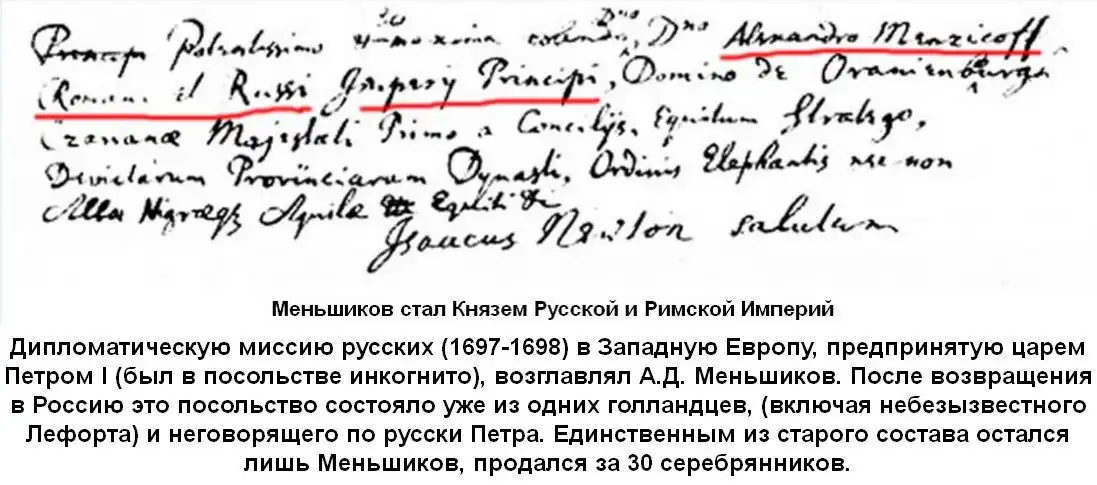 Potentissimo maxime colendo, Dno Alexandro Menzicoff
Romani et Russi Imperij Principi, Domino de Oranienburgh
Czarianæ Majestati Primo a Concilijs, Equitum Stratego,
Devictarum Provinciarum Dynasti, Ordinis Elephantis nec non
Albæ Nigræq Aquilæ Equiti
Isaacus Newton salutem
Меньшиков стал Князем Русской и Римской Империй
Дипломатическую миссию русских (1697-1698) в Западную Европу, предпринятую царем
Петром I (был в посольстве инкогнито), возглавлял А.Д. Меньшиков. После возвращения
в Россию это посольство состояло уже из одних голландцев, (включая небезызвестного
Лефорта) и неговорящего по русски Петра. Единственным из старого состава остался
лишь Меньшиков, продался за 30 серебрянников.